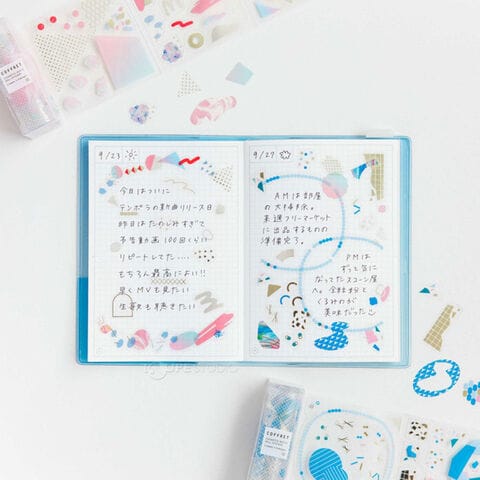 COFFRET
9/23
今日はついに
テンポラの新曲リリース日
昨日はたのしみすぎて
予告動画100回くらい
リピートしてた....
もちろん最高によい!!
早くMVも見たい
生歌も聴きたい
9/27
AMは部屋
の大掃除。
来週フリーマーケット
に出品するもの
準備完了。
PMは
ずっと気に
なってたスコーン屋
へ。全粒粉と
くるみのが
美味だった
COFFRET